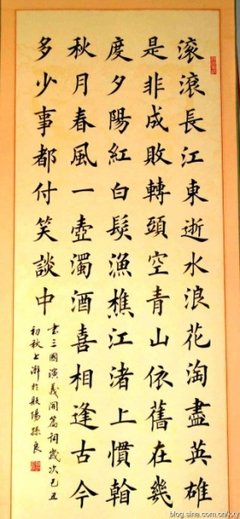 滚滚長江東逝水浪花淘盡英雄
是非成敗轉頭空青山依舊在幾
度夕陽紅白髮漁樵江渚上慣
秋月春風一壺濁酒喜相逢古今
多少事都付笑談中
書三國演義開篇詞歲次己丑
初秋上澣於陽孫良
blog.sina.com.cn